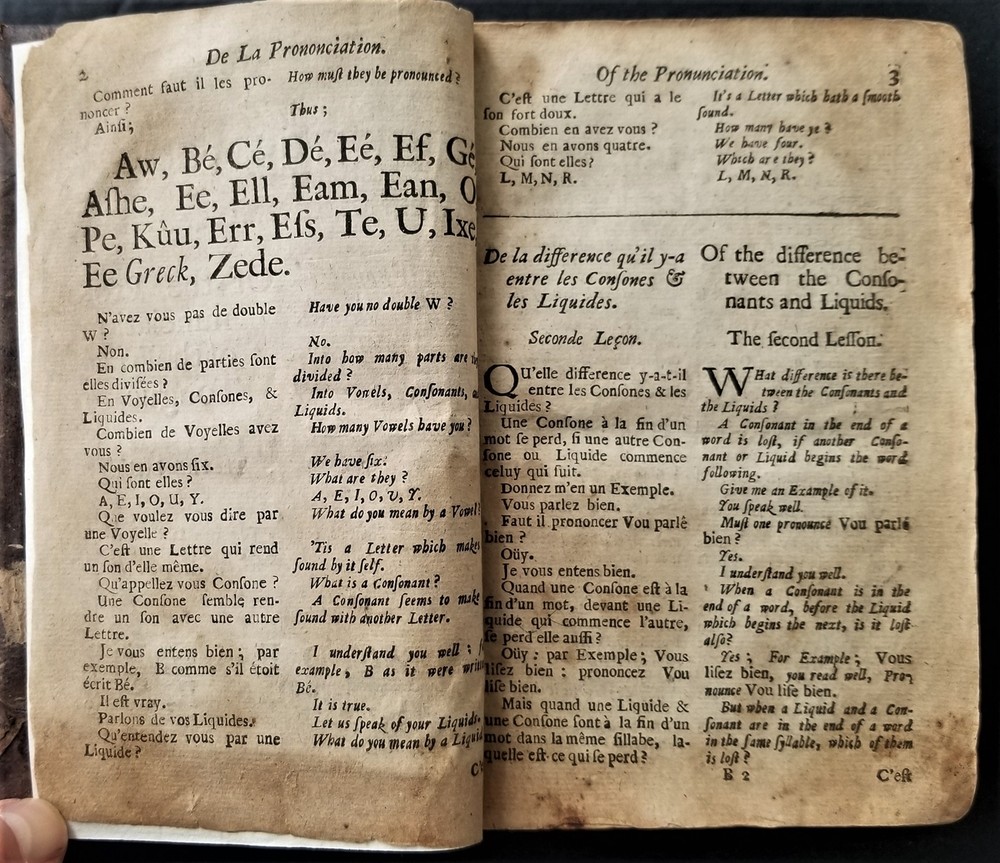 2
De La Prononciation.
Comment faut il les pro-
noncer ?
Ainſi;
How muſt they be pronounced ?
Thus ;
Aw, Bé, Cé, Dé, Eé, Ef, Gé
Aſhe, Ee, Ell, Eam, Ean, O
Pe, Kûu, Err, Eſs, Te, U, Ixe
Ee Greck, Zede.
N'avez vous pas de double
W ?
Non.
En combien de parties ſont
elles diviſées ?
En Voyelles, Conſones, &
Liquides.
Combien de Voyelles avez
vous ?
Nous en avons ſix.
Qui ſont elles ?
A, E, I, O, U, Y.
Que voulez vous dire par
une Voyelle ?
C'eſt une Lettre qui rend
un ſon d'elle même.
Qu'appellez vous Conſone ?
Une Conſone ſemble ren-
dre un ſon avec une autre
Lettre.
Je vous entens bien ; par
exemple, B comme s'il étoit
écrit Bé.
Il eſt vray.
Parlons de vos Liquides.
Qu'entendez vous par une
Liquide ?
Have you no double W ?
No.
Into how many parts are
divided ?
Into Vowels, Conſonants,
Liquids.
How many Vowels have you ?
We have ſix.
What are they ?
A, E, I, O, U, Y.
What do you mean by a Vowel
'Tis a Letter which makes
ſound by it ſelf.
What is a Conſonant ?
A Conſonant ſeems to make
ſound with another Letter.
I underſtand you well ;
example, B as it were
Bé.
It is true.
Let us ſpeak of your Liquids
What do you mean by a Liquid
Of the Pronunciation.
3
C'eſt une Lettre qui a le
ſon fort doux.
Combien en avez vous ?
Nous en avons quatre.
Qui ſont elles ?
L, M, N, R.
It's a Letter which hath a ſmooth
ſound.
How many have ye ?
We have four.
Which are they ?
L, M, N, R.
De la difference qu'il y-a
entre les Conſones &
les Liquides.
Seconde Leçon.
QU'elle difference y-a-t-il
entre les Conſones & les
Liquides ?
Une Conſone à la fin d'un
mot ſe perd, ſi une autre Con-
ſone ou Liquide commence
celuy qui ſuit.
Donnez m'en un Exemple.
Vous parlez bien.
Faut il prononcer Vou parlê
bien ?
Oüy.
Je vous entens bien.
Quand une Conſone eſt à la
fin d'un mot, devant une Li-
quide qui commence l'autre,
ſe perd elle auſſi ?
Oüy : par Exemple ; Vous
liſez bien : prononcez Vou
liſe bien.
Mais quand une Liquide &
une Conſone ſont à la fin d'un
mot dans la même ſillabe, la-
quelle eſt-ce qui ſe perd ?
Of the difference be-
tween the Conſo-
nants and Liquids.
The ſecond Leſſon.
WHat difference is there be-
tween the Conſonants and
the Liquids ?
A Conſonant in the end of a
word is loſt, if another Conſo-
nant or Liquid begins the word
following.
Give me an Example of it.
You ſpeak well.
Muſt one pronounce Vou parlé
bien ?
Yes.
I underſtand you well.
When a Conſonant is in the
end of a word, before the Liquid
which begins the next, is it loſt
alſo?
Yes ; For Example ; Vous
liſez bien, you read well, Pro-
nounce Vou liſe bien.
But when a Liquid and a Con-
ſonant are in the end of a word
in the ſame ſyllable, which of them
is loſt ?
B 2
C'eſt